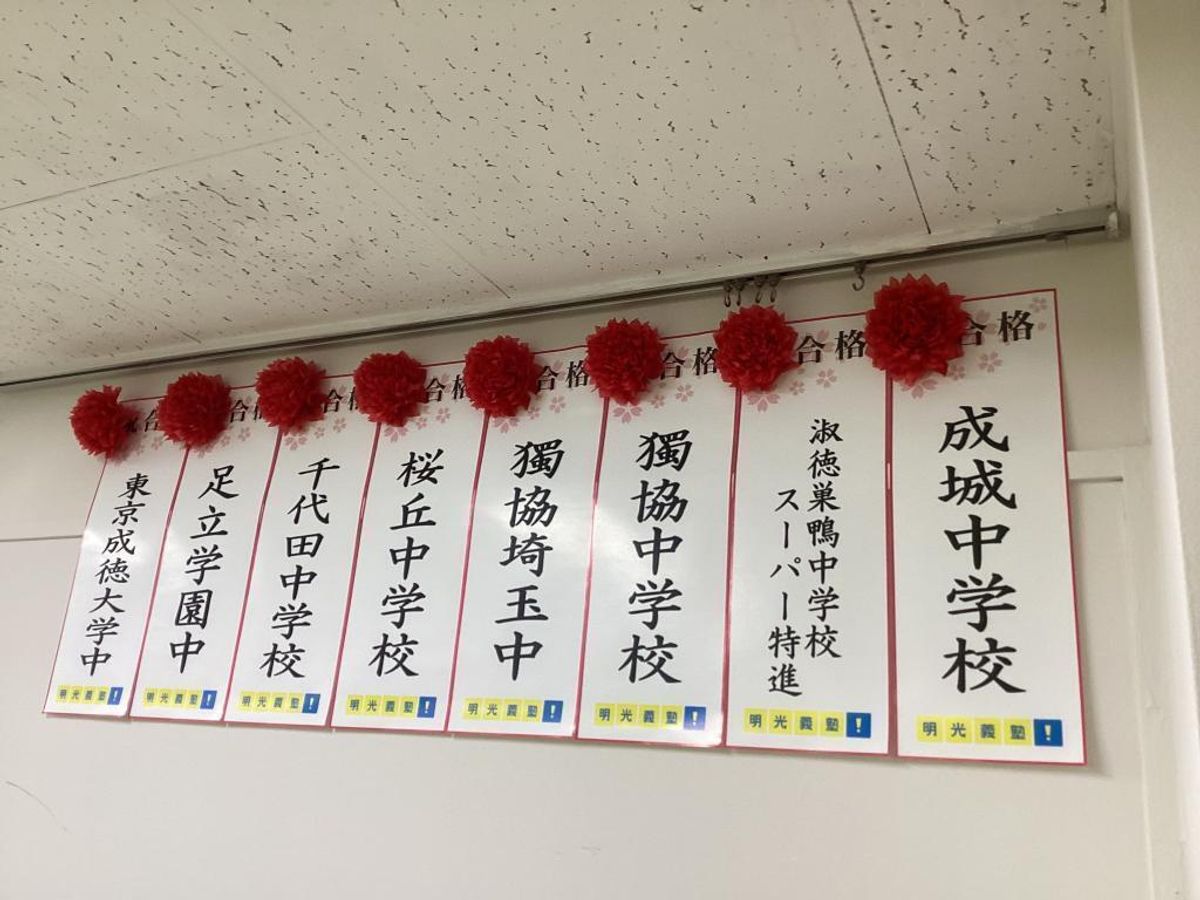 合格
成城中学校
明光義塾!
合格
淑徳巣鴨中学校
スーパー特進
明光義塾!
合格
獨協中学校
明光義塾!
合格
獨協埼玉中
明光義塾!
合格
桜丘中学校
明光義塾!
合格
千代田中学校
明光義塾!
合格
足立学園中
明光義塾!
合
東京成徳大学中
明光義塾!